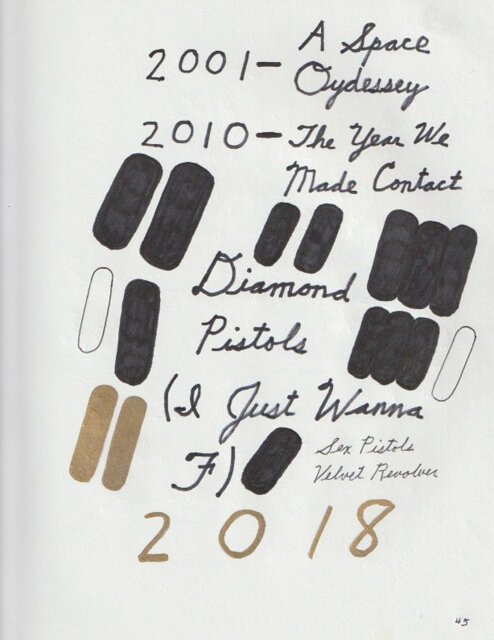 2001- A Space
Oydessey
2010- The Year We
Made Contact
Diamond
Pistols
(I Just Wanna
F)
Sex Pistols
Velvet Revolver
2018
45